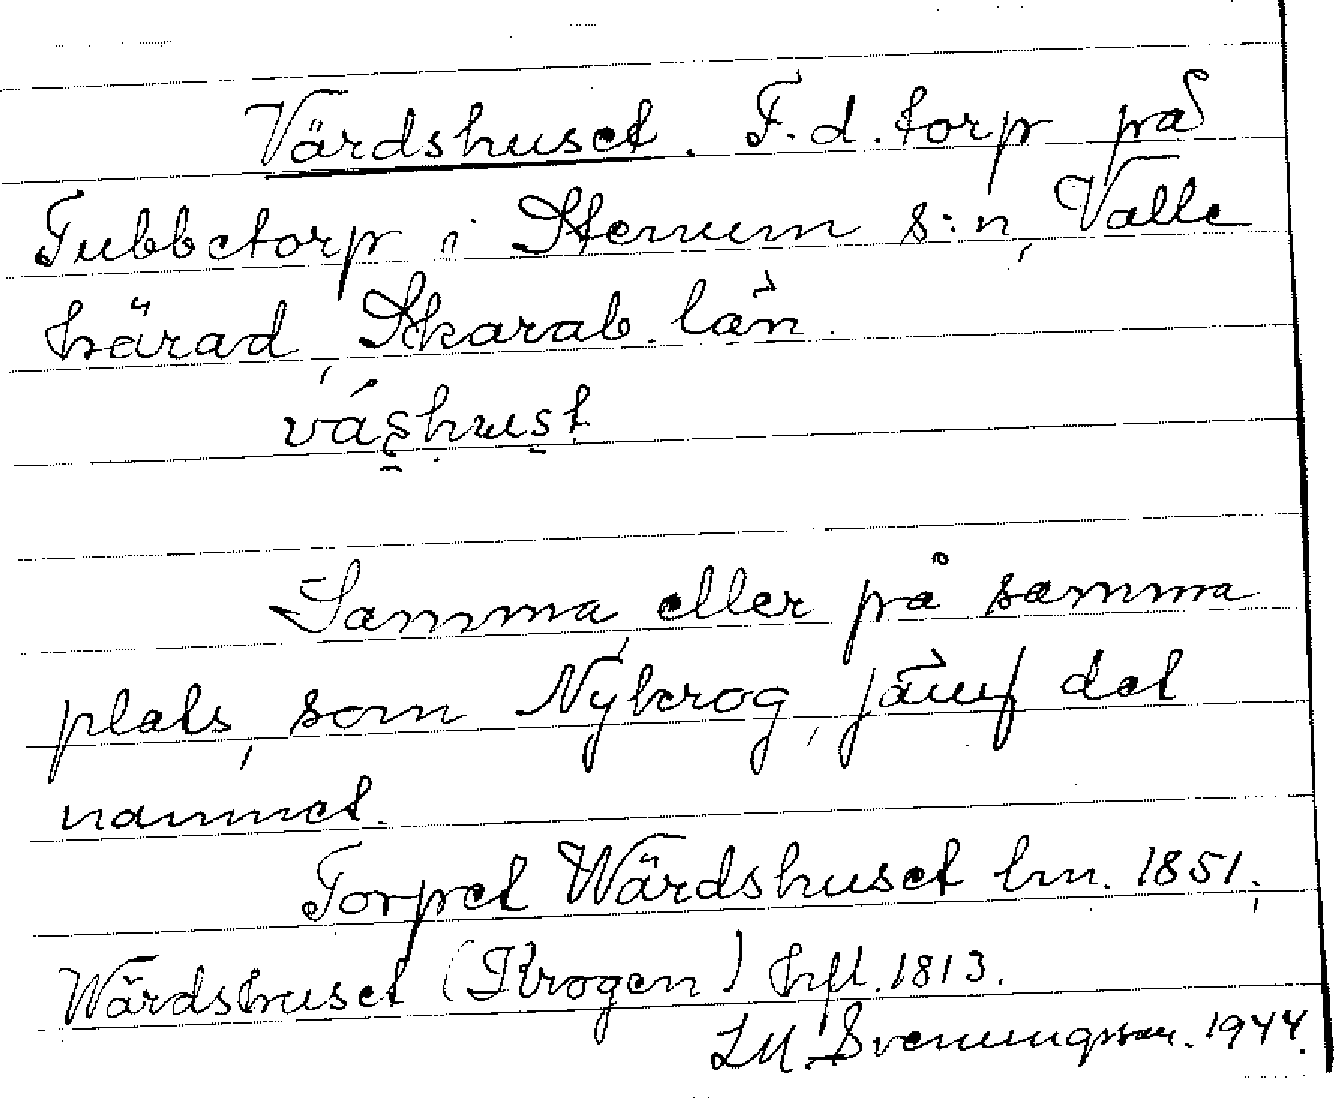 Värdshuset. F.d. torp på
Tubbetorp i Stenum s:n, Valle
härad, Skarab. län.
Samma, eller på samma
plats, som Nykrog, jämf det
namnet.
Torpet Wärdshuset lm. 1851,
Wärdshuset (Krogen) hfl. 1813.
LM. Svenungsson. 1944.